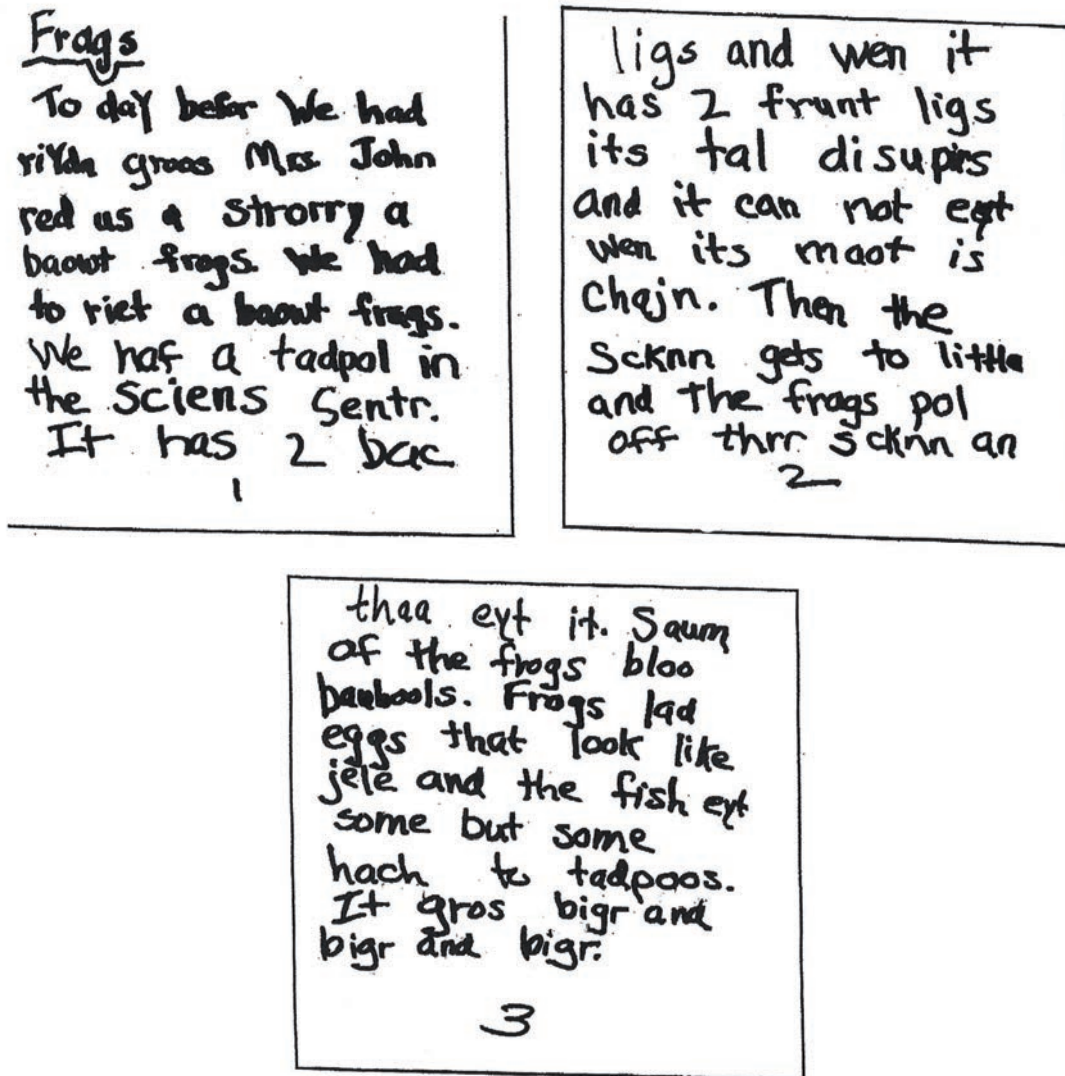 Frags
To day befor We had
riYdn groos Mrs. John
red us a strorry a
baowt frogs. We had
to riet a baowt frags.
We haf a tadpol in
the sciens Sentr.
It has 2 bac
1
ligs and wen it
has 2 frunt ligs
its tal disupirs
and it can not eyt
wen its maot is
chajn. Then the
Scknn gets to little
and The frags pol
off thrr scknn an
2
thaa eyt it. Saum
of the frogs bloo
baubools. Frogs lad
eggs that look like
jele and the fish eyt
some but some
hach to tadpoos.
It gros bigr and
bigr and bigr.
3